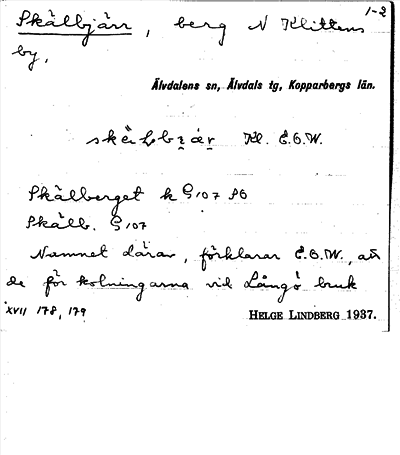 1-2
Skålbjärr, berg N Klittens
by,
Älvdalens sn, Älvdals tg, Kopparbergs län.
Kl. E.O.W.
Skålberget k G107 SO
Skålb. G107
Namnet därav, förklarar E.O.W., att
de för kolningarna vid Långö bruk
XVII 178, 179
HELGE LINDBERG 1937.